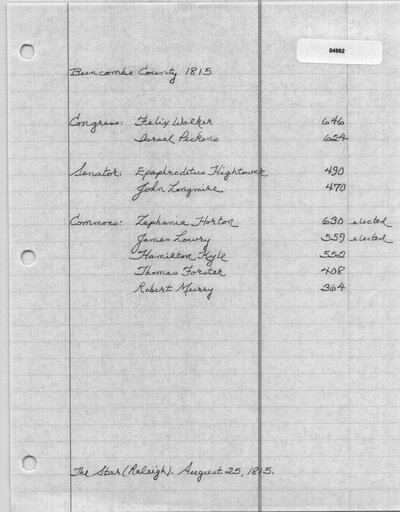 04992
Buncombe County 1815
Congress: Felix Walker 646
Israel Pickens 624
Senator: Epaphroditus Hightower 490
John Longmire 470
Commons: Zephania Horton 630 elected
James Lowry 559 elected
Hamilton Kyle 552
Thomas Forster 408
Robert Murry 364
The Star (Raleigh). August 25, 1815.